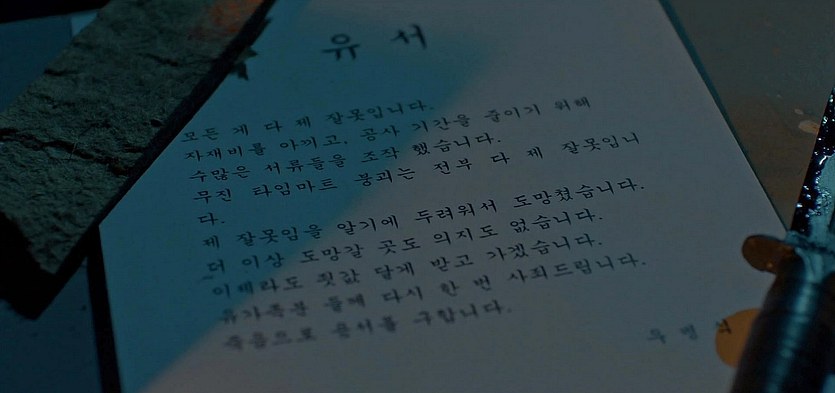 유서
모든 게 다 제 잘못입니다.
자재비를 아끼고, 공사 기간을 줄이기 위해
수많은 서류들을 조작 했습니다.
무진 타임마트 붕괴는 전부 다 제 잘못입니
다.
제 잘못임을 알기에 두려워서 도망쳤습니다.
더 이상 도망갈 곳도 의지도 없습니다.
이제라도 죗값 달게 받고 가겠습니다.
유가족분 들께 다시 한 번 사죄드립니다.
죽음으로 용서를 구합니다.